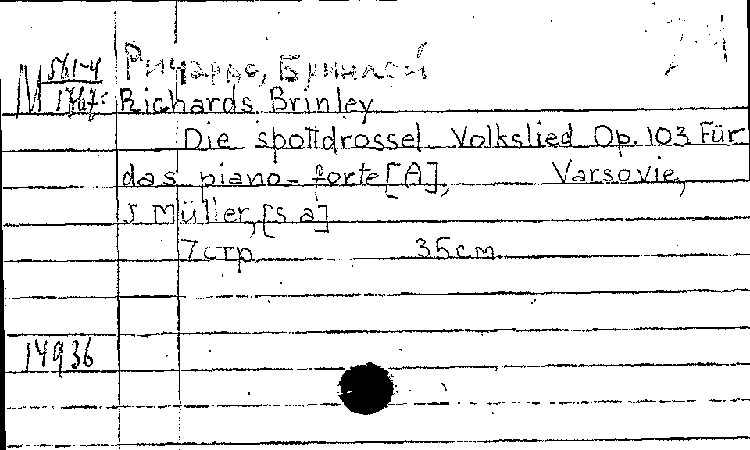 М 561-4 Ричардс, Бринлей
1767: Richards Brinley
Die spottdrossel Volkslied Op. 103 Für
das piano-forte [A], Varsovie,
J Müller, [s a]
7 стр 35 см
14936